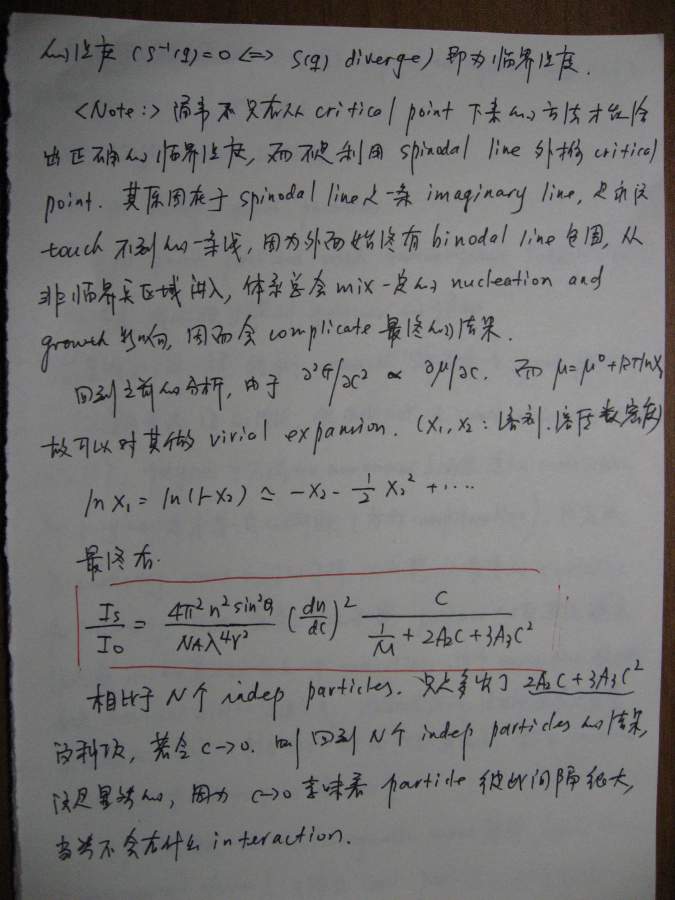 的温度 (S⁻¹(q)=0 <=> S(q) diverge) 即为临界温度.
<Note:> 通常不只有从 critical point 下来的方法才能给
出正确的临界温度, 而不是利用 spinodal line 外推 critical
point. 其原因在于 spinodal line 是一条 imaginary line, 是永远
touch 不到的一条线, 因为外面始终有 binodal line 包围, 从
非临界点区域进入, 体系总会 mix 一定的 nucleation and
growth 影响, 因而会 complicate 最终的结果.
回到之前的分析, 由于 ∂²G/∂c² ∝ ∂μ/∂c. 而 μ=μ⁰+RTlnX₁
故可以对其做 virial expansion. (X₁, X₂: 溶剂. 溶质数密度)
ln X₁ = ln(1-X₂) ≃ -X₂ - 1/2 X₂² + ....
最终有.
Is/I₀ = 4π²n²sin²θ/(N_Aλ⁴r²) (dn/dc)² C/(1/M + 2A₂C + 3A₃C²)
相比于 N个 indep particles. 只是多出了 2A₂C+3A₃C²
这种项, 若令 c→0. 则回到 N个 indep particles 的结果,
这是显然的, 因为 c→0 意味着 particle 彼此间隔很大,
当然不会有什么 interaction.